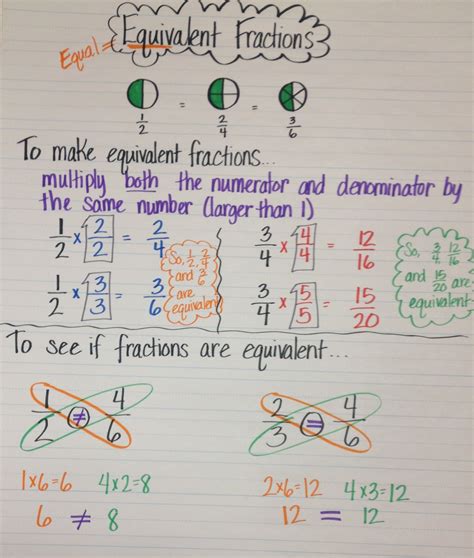 Equivalent Fractions
Equal =
1/2 = 2/4 = 3/6
To make equivalent fractions...
multiply both the numerator and denominator by
the same number (larger than 1)
1/2 x 2/2 = 2/4
1/2 x 3/3 = 3/6
So, 1/2, 2/4
and 3/6
are
equivalent
3/4 x 4/4 = 12/16
3/4 x 5/5 = 15/20
So, 3/4, 12/16
and 15/20 are
equivalent
To see if fractions are equivalent...
1/2 ≠ 4/6
1x6=6 4x2=8
6 ≠ 8
2/3 = 4/6
2x6=12 4x3=12
12 = 12